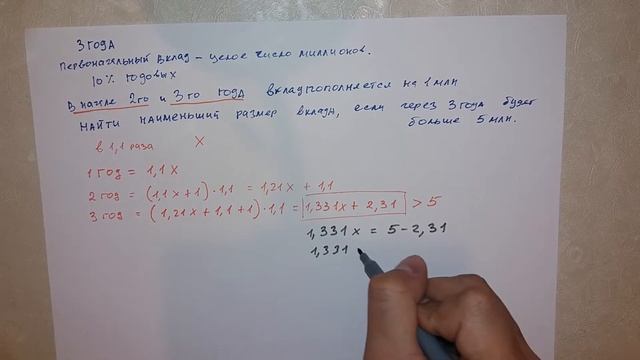 3 года
Первоначальный вклад – целое число миллионов.
10% годовых
В начале 2го и 3го года вклад пополняется на 1 млн
Найти наименьший размер вклада, если через 3 года будет
больше 5 млн.
в 1,1 раза x
1 год = 1,1x
2 год = (1,1x+1)·1,1 = 1,21x + 1,1
3 год = (1,21x+1,1+1)·1,1 = 1,331x + 2,31 > 5
1,331x = 5-2,31
1,331